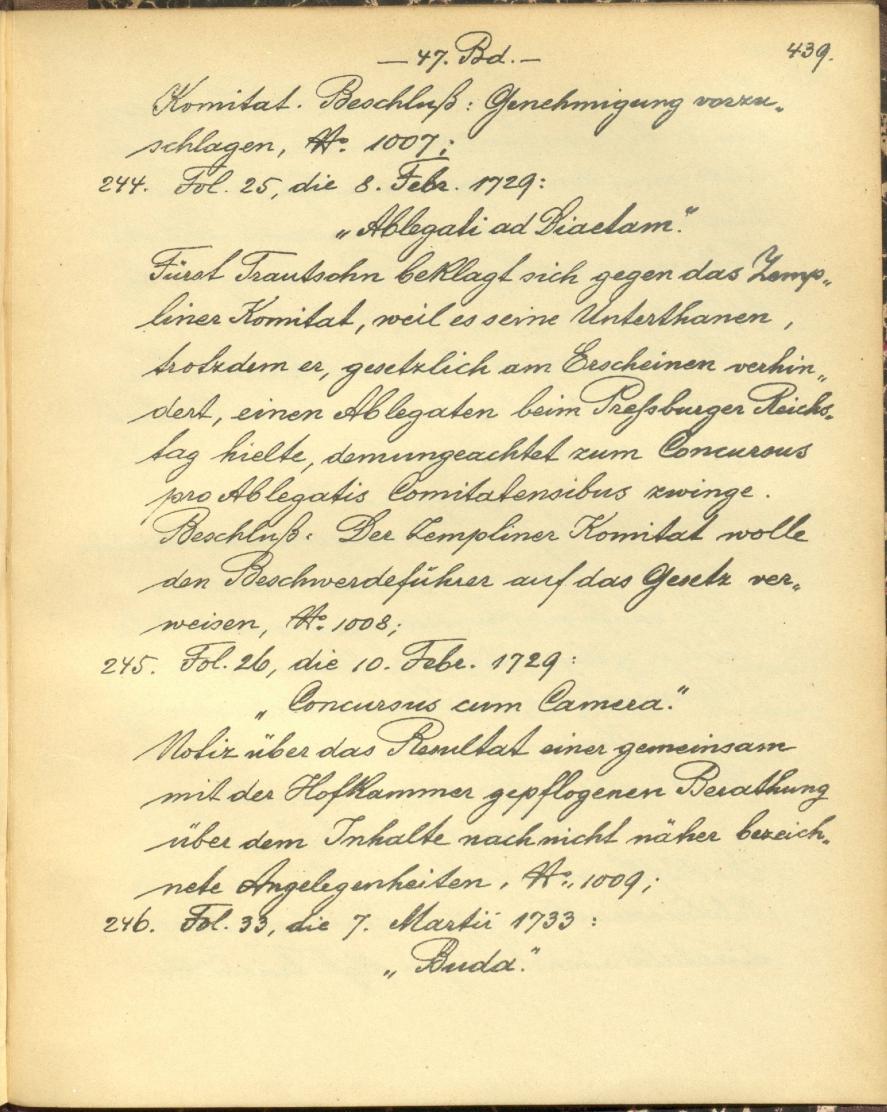 — 47. Bd. — 439.
Komitat. Beschluß: Genehmigung vorzu-
schlagen, No. 1007;
244. Fol. 25, die 8. Febr. 1729:
„Ablegati ad Diaetam."
Fürst Trautsohn beklagt sich gegen das Zemp-
liner Komitat, weil es seine Unterthanen,
trotzdem er, gesetzlich am Erscheinen verhin-
dert, einen Ablegaten beim Preßburger Reichs-
tag hielte, demungeachtet zum Concursus
pro Ablegatis Comitatensibus zwinge.
Beschluß: Der Zempliner Komitat wolle
den Beschwerdeführer auf das Gesetz ver-
weisen, No. 1008;
245. Fol. 26, die 10. Febr. 1729:
„Concursus cum Camera."
Notiz über das Resultat einer gemeinsam
mit der Hofkammer gepflogenen Berathung
über dem Inhalte nach nicht näher bezeich-
nete Angelegenheiten, No. 1009;
246. Fol. 33, die 7. Martii 1733:
„Buda."